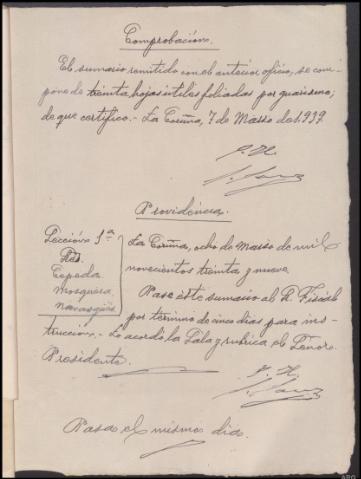 Comprobación.
El sumario remitido con el anterior oficio, se com-
pone de treinta hojas útiles foliadas por guarismo;
de que certifico.- La Coruña, 7 de Marzo de 1.939.
Providencia.
Sección 1ª
Cepeda
Mosquera
Navasqüés
La Coruña, ocho de Marzo de mil
novecientos treinta y nueve.
Pase este sumario al Sr. Fiscal
por término de cinco días para ins-
trucción.- Lo acordó la Sala y rubrica el Señor
Presidente.
Pasa el mismo día.